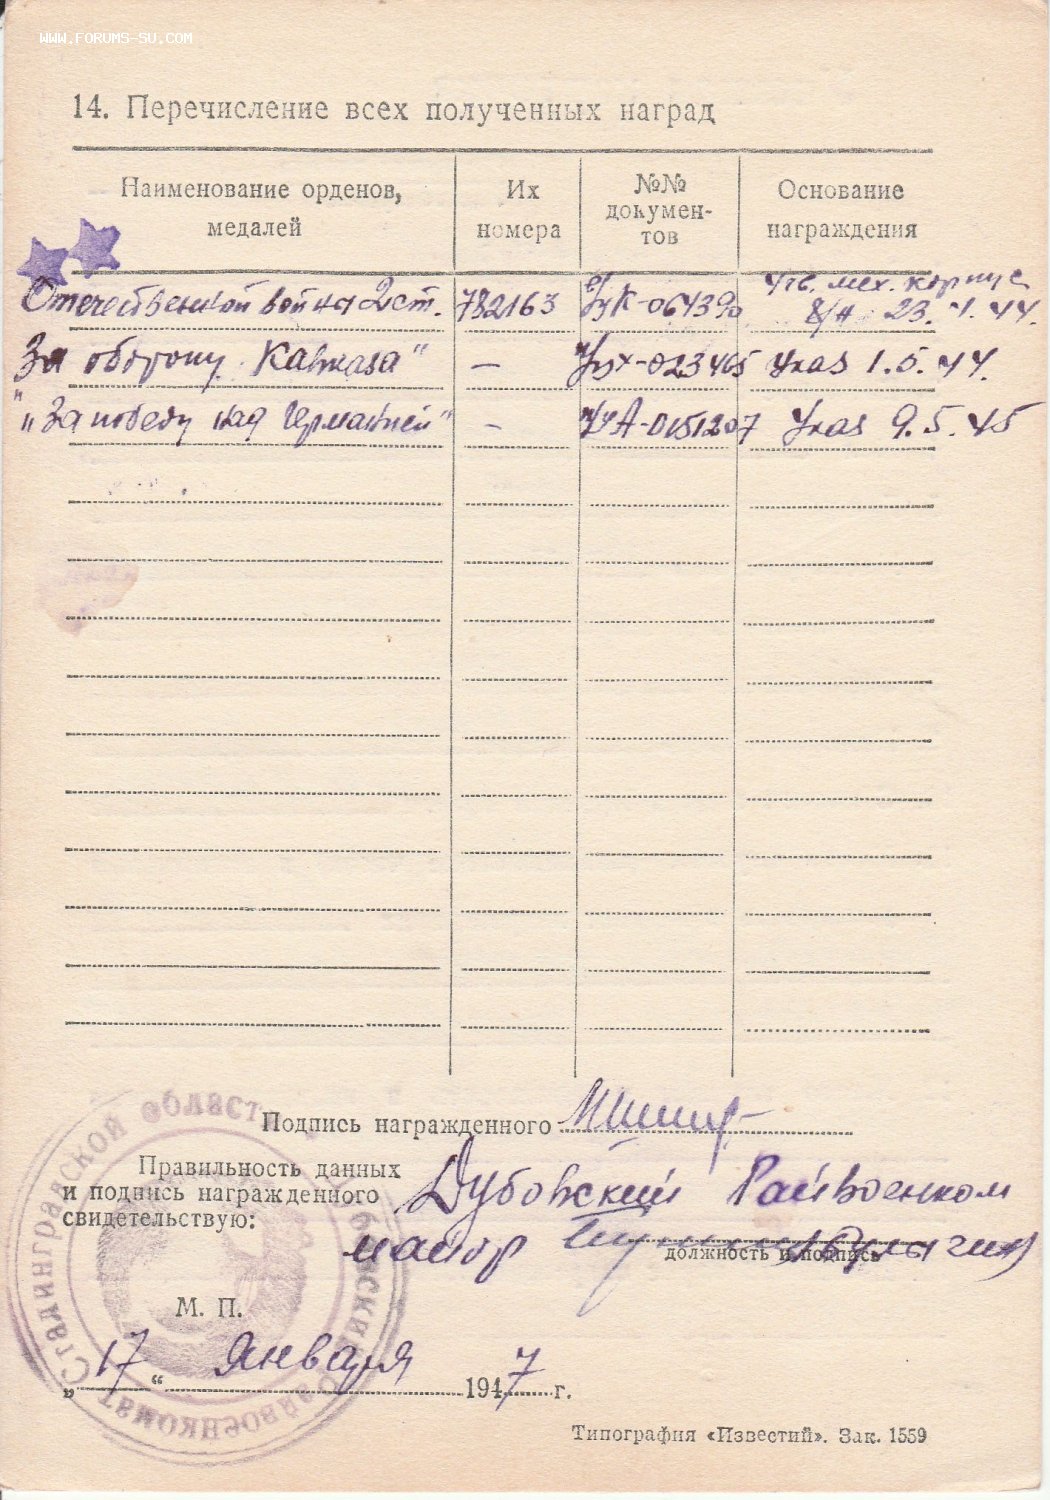 WWW.FORUMS-SU.COM
14. Перечисление всех полученных наград
Наименование орденов, медалей
Их номера
№№ докумен-
тов
Основание награждения
Отечественной войны 2 ст. 782163 К-064390 мех. корпус
23. 44.
За оборону Кавказа" — -023465 Указ 1.5.44.
"За победу над Германией" — А-0151207 Указ 9.5.45
Подпись награжденного
Правильность данных
и подпись награжденного
свидетельствую:
Дубовский Райвоенком
майор
должность и подпись
М. П.
„17“ Января 1947 г.
Сталинградской области
Дубовский райвоенкомат
Типография «Известий». Зак. 1559